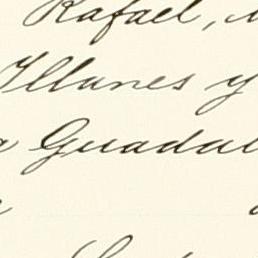 Rafael,
Illanes y
Guadal